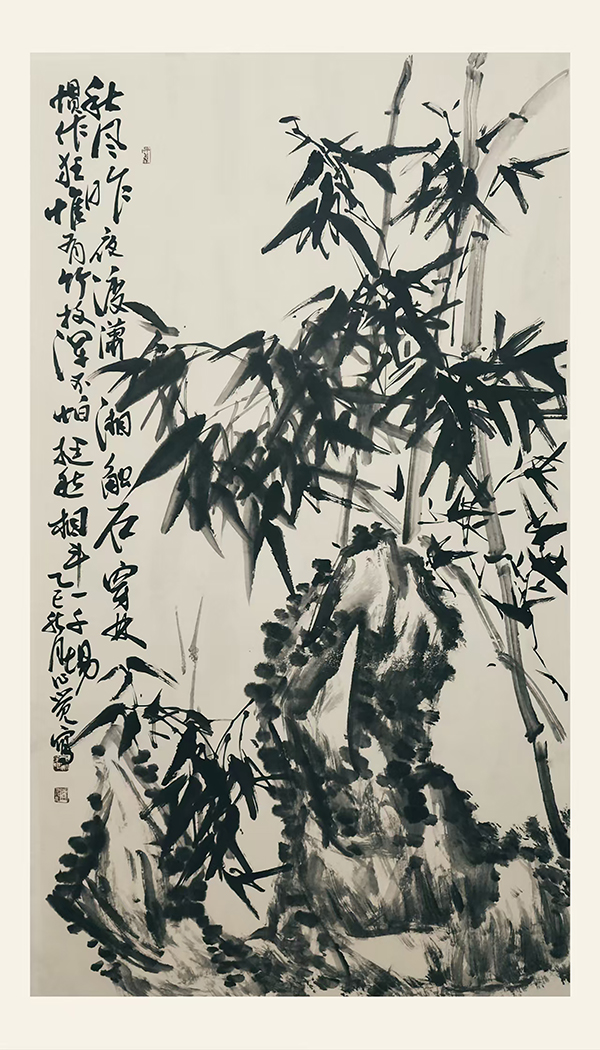 秋风昨夜渡潇湘触石穿林
惯作狂惟有竹枝浑不怕挺然相斗一千场
乙巳秋月 心觉写